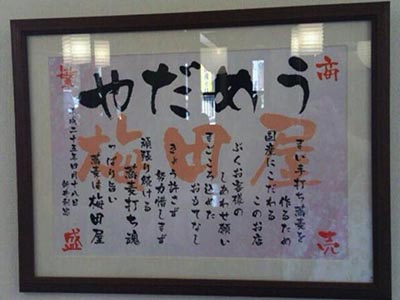 うめだや
梅田屋
商売繁盛
まい手打ち蕎麦を
作るため
国産にこだわる
このお店
お客様の
しあわせ願い
まごころ込めた
おもてなし
きょう許さず
努力惜しまず
頑張り続ける
蕎麦打ち魂
っぱり旨い
蕎麦は梅田屋
平成二十五年四月十八日